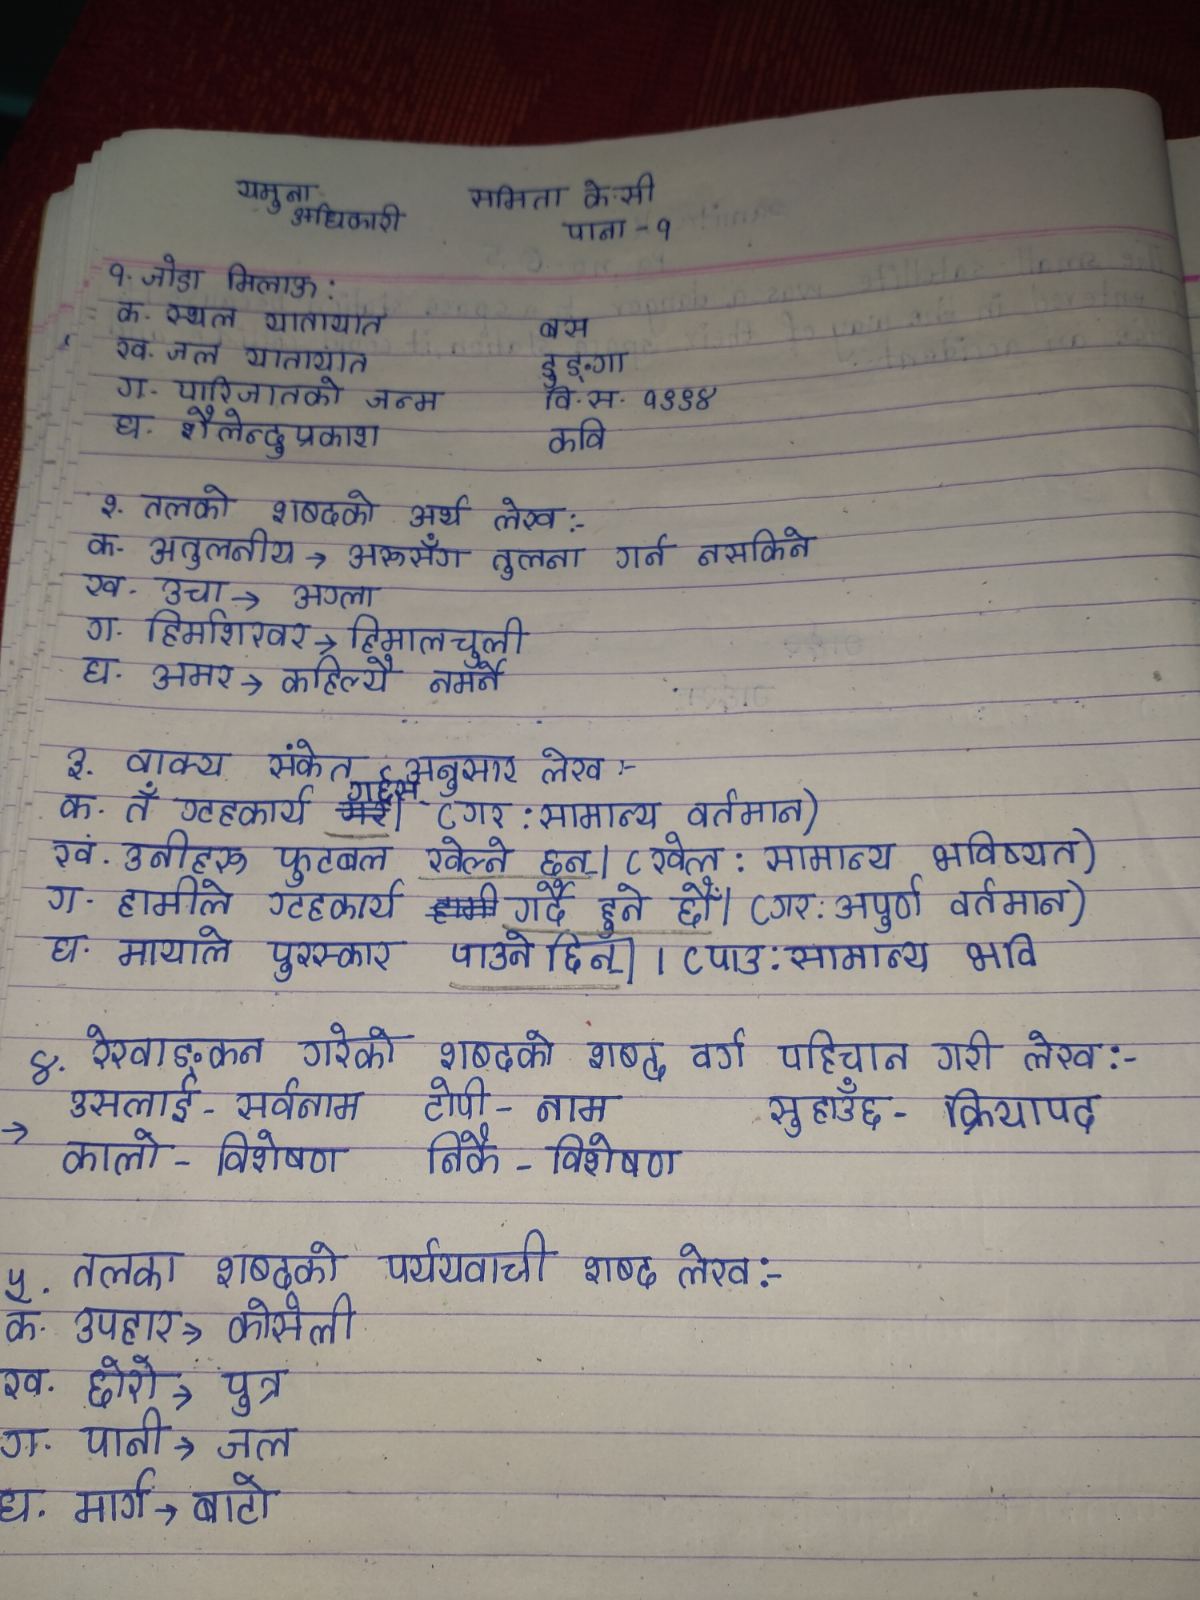 यमुना अधिकारी समिता के.सी
पाना - १
१. जोडा मिलाऊ :
क. स्थल यातायात बस
ख. जल यातायात डुङ्गा
ग. पारिजातको जन्म वि.स. १९९४
घ. शैलेन्दुप्रकाश कवि
२. तलको शब्दको अर्थ लेख :-
क. अतुलनीय → अरूसँग तुलना गर्न नसकिने
ख. उचा → अग्ला
ग. हिमशिखर → हिमालचुली
घ. अमर → कहिल्यै नमर्ने
३. वाक्य संकेत अनुसार लेख :-
क. तँ गृहकार्य गर्छस् । (गर : सामान्य वर्तमान)
ख. उनीहरू फुटबल खेल्ने छन् । (खेल : सामान्य भविष्यत)
ग. हामीले गृहकार्य हामी गर्दै हुने छौँ । (गर : अपुर्ण वर्तमान)
घ. मायाले पुरस्कार पाउने छिन् । । (पाउ : सामान्य भवि
४. रेखाङ्कन गरेको शब्दको शब्द वर्ग पहिचान गरी लेख :-
→ उसलाई - सर्वनाम टोपी - नाम सुहाउँछ - क्रियापद
कालो - विशेषण निकै - विशेषण
५. तलका शब्दको पर्ययवाची शब्द लेख :-
क. उपहार → कोसेली
ख. छोरो → पुत्र
ग. पानी → जल
घ. मार्ग → बाटो